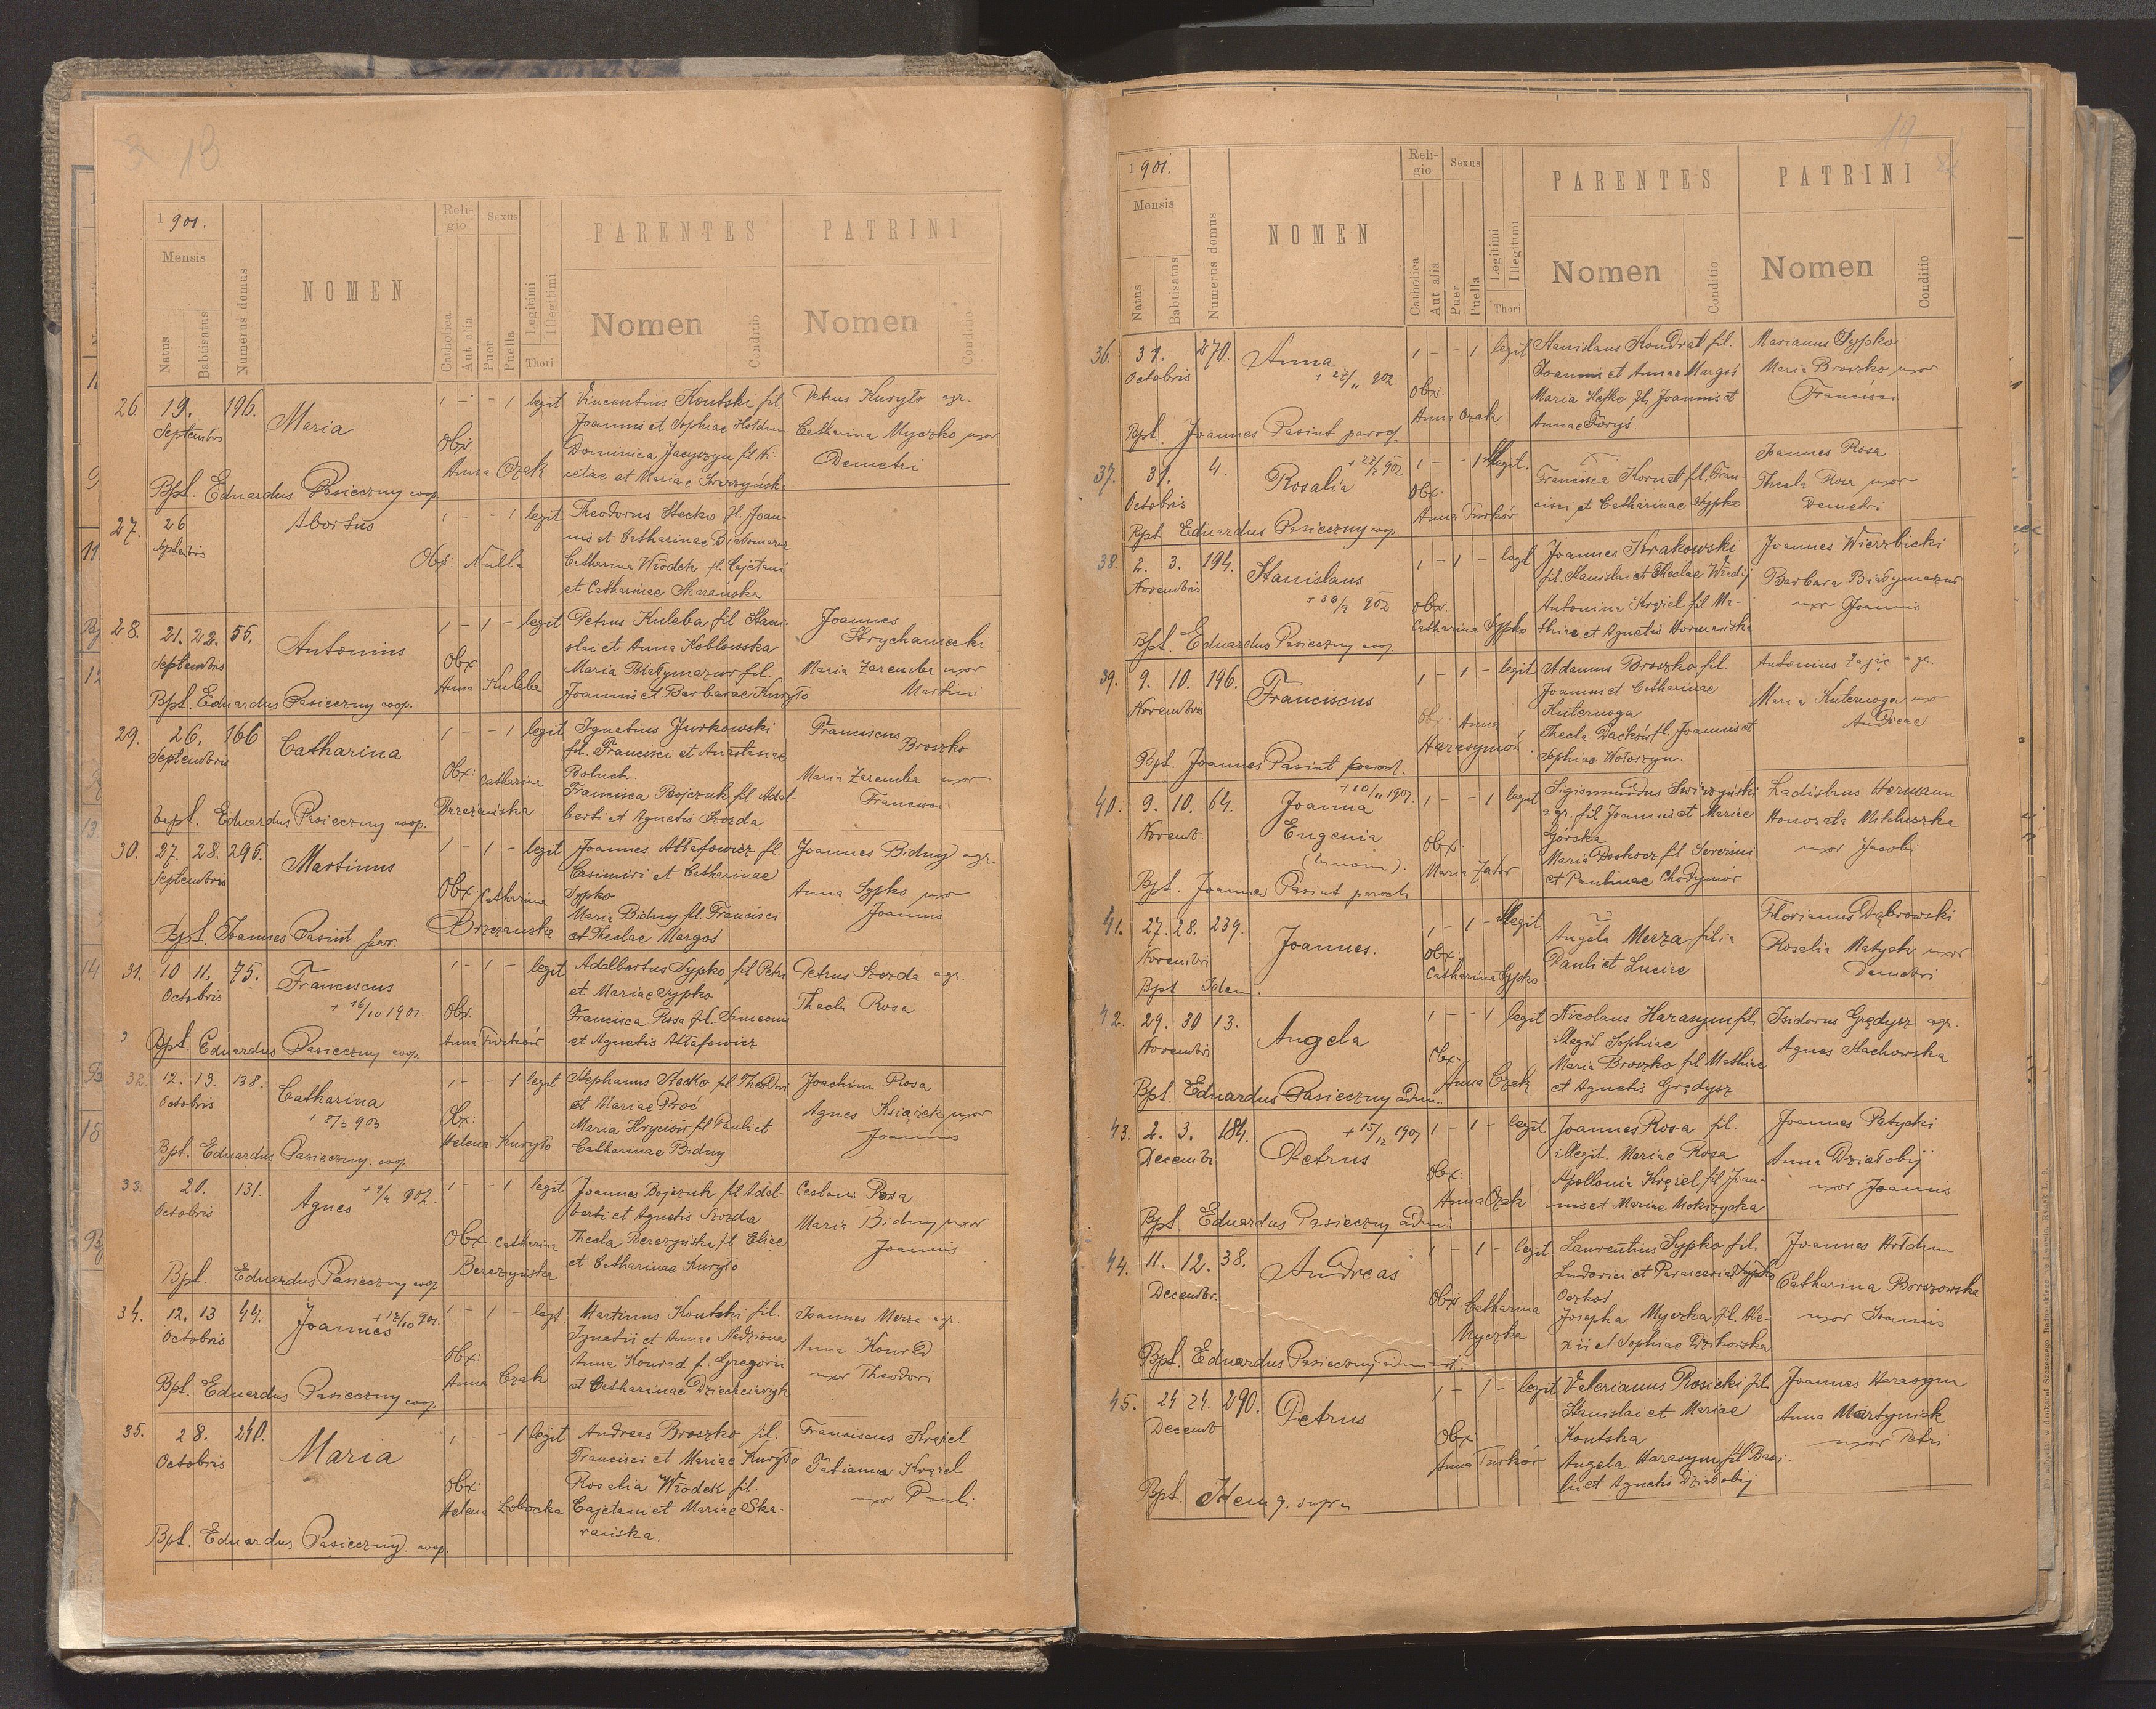 18
1901.
Mensis
Natus
Babtisatus
Numerus domus
NOMEN
Reli-
gio
Catholica
Aut alia
Sexus
Puer
Puella
Legitimi
Illegitimi
Thori
PARENTES
Nomen
Conditio
PATRINI
Nomen
Conditio
26 19. 196. Maria 1 - - 1 legit Vincentius Koutski fil. Petrus Kuryło agr.
Septembris Joannis et Sophiae Hołdun Catharina Myczko uxor
Obx. Dominica Jacyszyn fil. Ni- Demetri
Anna Czak cetae et Mariae
Bpt. Eduardus Pasieczny coop.
27. 26 Abortus 1 - - 1 legit Theodorus Stecko fil. Joan-
Septembris nis et Catharinae
Obx: Nulla Catharina Włodek fil. Cajetani
et Catharinae Skarańska
28. 21. 22. 55. Antonius 1 - 1 - legit Petrus Kuleba fil. Stani- Joannes
Septembris slai et Anna Kobłowska Strychaniecki
Obx: Maria Białymazur fil. Maria Zaremba uxor
Anna Kuleba Joannis et Barbarae Kuryło Martini
Bpt. Eduardus Pasieczny coop.
29. 26. 166 Catharina 1 - - 1 legit Ignatius Jurkowski Franciscus
Septembris fil. Francisci et Anastasiae Broszko
Obx: Catharina Boluch. Maria Zaremba uxor
Brzezańska Francisca Bojczuk fil. Adal- Francisci
berti et Agnetis Szozda
bapt. Eduardus Pasieczny coop.
30. 27. 28. 295. Martinus 1 - 1 - legit Joannes Ałtafowicz fil. Joannes Bidny agr.
Septembris Casimiri et Catharinae
Obx. Catharina Sypko Anna Sypko uxor
Brzezańska Maria Bidny fil. Francisci Joannis
et Theclae Margos
Bpt. Joannes Pasiut par.
31. 10 11. 75. Franciscus 1 - 1 - legit Adalbertus Sypko fil. Petri Petrus Szozda agr.
Octobris + 16/10 1901. et Mariae Sypko Thecla Rosa
Obx. Francisca Rosa fil. Simeonis
Anna Turków et Agnetis Ałtafowicz
Bpt. Eduardus Pasieczny coop.
32. 12. 13. 138. Catharina 1 - - 1 legit Stephanus Stecko fil. Theodori Joachim Rosa
Octobris + 8/3 903. et Mariae Proć Agnes Książek uxor
Obx: Maria Hryciów fil. Pauli et Joannis
Helena Kuryło Catharinae Bidny
Bpt. Eduardus Pasieczny. coop.
33. 20. 131. Agnes 902. 1 - - 1 legit Joannes Bojczuk fil. Adal- Ceslaus Rosa
Octobris berti et Agnetis Szozda Maria Bidny uxor
Obx. Catharina Thecla Berezyńska fil. Eliae Joannis
Berezyńska et Catharinae Kuryło
Bpt. Eduardus Pasieczny coop.
34. 12. 13 44. Joannes + 12/10 901. 1 - 1 - legt. Martinus Koutski fil. Joannes Merza agr.
Octobris Ignatii et Annae Anna Konrad
Obx: Anna Konrad f. Gregorii uxor Theodori
Anna Czak et Catharinae
Bpt. Eduardus Pasieczny coop.
35. 28. 240. Maria 1 - - 1 legit Andreas Broszko fil. Franciscus Krąziel
Octobris Francisci et Mariae Kuryło Tatianna Krąziel
Obx: Rosalia Włodek fil. uxor Pauli
Helena Łobocka Cajetani et Mariae Ska-
rańska.
Bpt. Eduardus Pasieczny. coop.
19
1901.
Mensis
Natus
Babtisatus
Numerus domus
NOMEN
Reli-
gio
Catholica
Aut alia
Sexus
Puer
Puella
Legitimi
Illegitimi
Thori
PARENTES
Nomen
Conditio
PATRINI
Nomen
Conditio
36. 31. 270. Anna 1 - - 1 legit Stanislaus Kondrat fil. Marianus Sypko
Octobris + 22/11 902. Joannis et Annae Margoś Maria Broszko uxor
Obx. Maria fil. Joannis et Francisci
Anna Czak Annae Foryś.
Bpt. Joannes Pasiut paroch.
37. 31. 4. Rosalia + 22/2 902 1 - - 1 Illegit. Joannes Rosa
Octobris Obx. Francisca Kornat fil. Fran- Thecla Rosa uxor
Anna Turków cisci et Catharinae Sypko Demetri
Bpt Eduardus Pasieczny coop.
38. 2. 3. 194. Stanislaus 1 - 1 - legit Joannes Krakowski Joannes Wierzbicki
Novembris 902 fil. Stanislai et Theclae Barbara Białymazur
Obx. Antonina Krąziel fil. Ma- uxor Joannis
Catharina Sypko thiae et Agnetis
Bpt. Eduardus Pasieczny coop.
39. 9. 10. 196. Franciscus 1 - 1 - legit Adamus Broszko fil. Antonius Zając agr.
Novembris Joannis et Catharinae Maria Kuternoga uxor
Obx: Anna Kuternoga Andreae
Harasymów. Thecla Dacków fil. Joannis et
Sophiae Wołoszyn.
Bpt. Joannes Pasiut paroch.
40. 9. 10. 64. Joanna + 10/11 1901. 1 - - 1 legit Sigismundus Świrzyński Ladislaus Hermann
Novemb. Eugenia agr. fil. Joannis et Mariae Honorata
(binom). Obx. Górska uxor Jacobi
Maria Zator Maria Doskocz fil. Severini
et Paulinae
Bpt. Joannes Pasiut paroch
41. 27. 28. 239. Joannes. 1 - 1 - Illegit. Florianus Dąbrowski
Novembri Obx: Angela Merza filia Rosalia Matych uxor
Catharina Sypko Pauli et Luciae Demetri
Bpt Idem.
42. 29. 30 13. Angela 1 - - 1 legit Nicolaus Harasym fil. Isidorus Grędysz agr.
Novembri illegit. Sophiae Agnes Stachowska
Obx. Maria Broszko fil. Mathiae
Anna Czak et Agnetis Grędysz
Bpt. Eduardus Pasieczny adm..
43. 2. 3. 184. Petrus + 15/12 1901 1 - 1 - legit Joannes Rosa fil. Joannes
Decembr illegit. Mariae Rosa Anna Działobij
Obx: Apollonia Krąziel fil. Joan- uxor Joannis
Anna Czak nis et Mariae Mokrzycka
Bpt. Eduardus Pasieczny adm.
44. 11. 12. 38. Andreas 1 - 1 - legit Laurentius Sypko fil. Joannes Hołdun
Decembr. Ludovici et Parasceviae Sypko Catharina Borszowska
Obx Catharina Josepha Myczka fil. Ale- uxor Joannis
Myczka xii et Sophiae
Bpt. Eduardus Pasieczny administ.
45. 24 24. 290. Petrus 1 - 1 - legit Valerianus Rosicki fil. Joannes Harasym
Decemb Stanislai et Mariae Anna Martyniak
Obx Koutska uxor Petri
Anna Turków Angela Harasym fil. Basi-
lii et Agnetis Działobij
Bpt. Idem q. supra